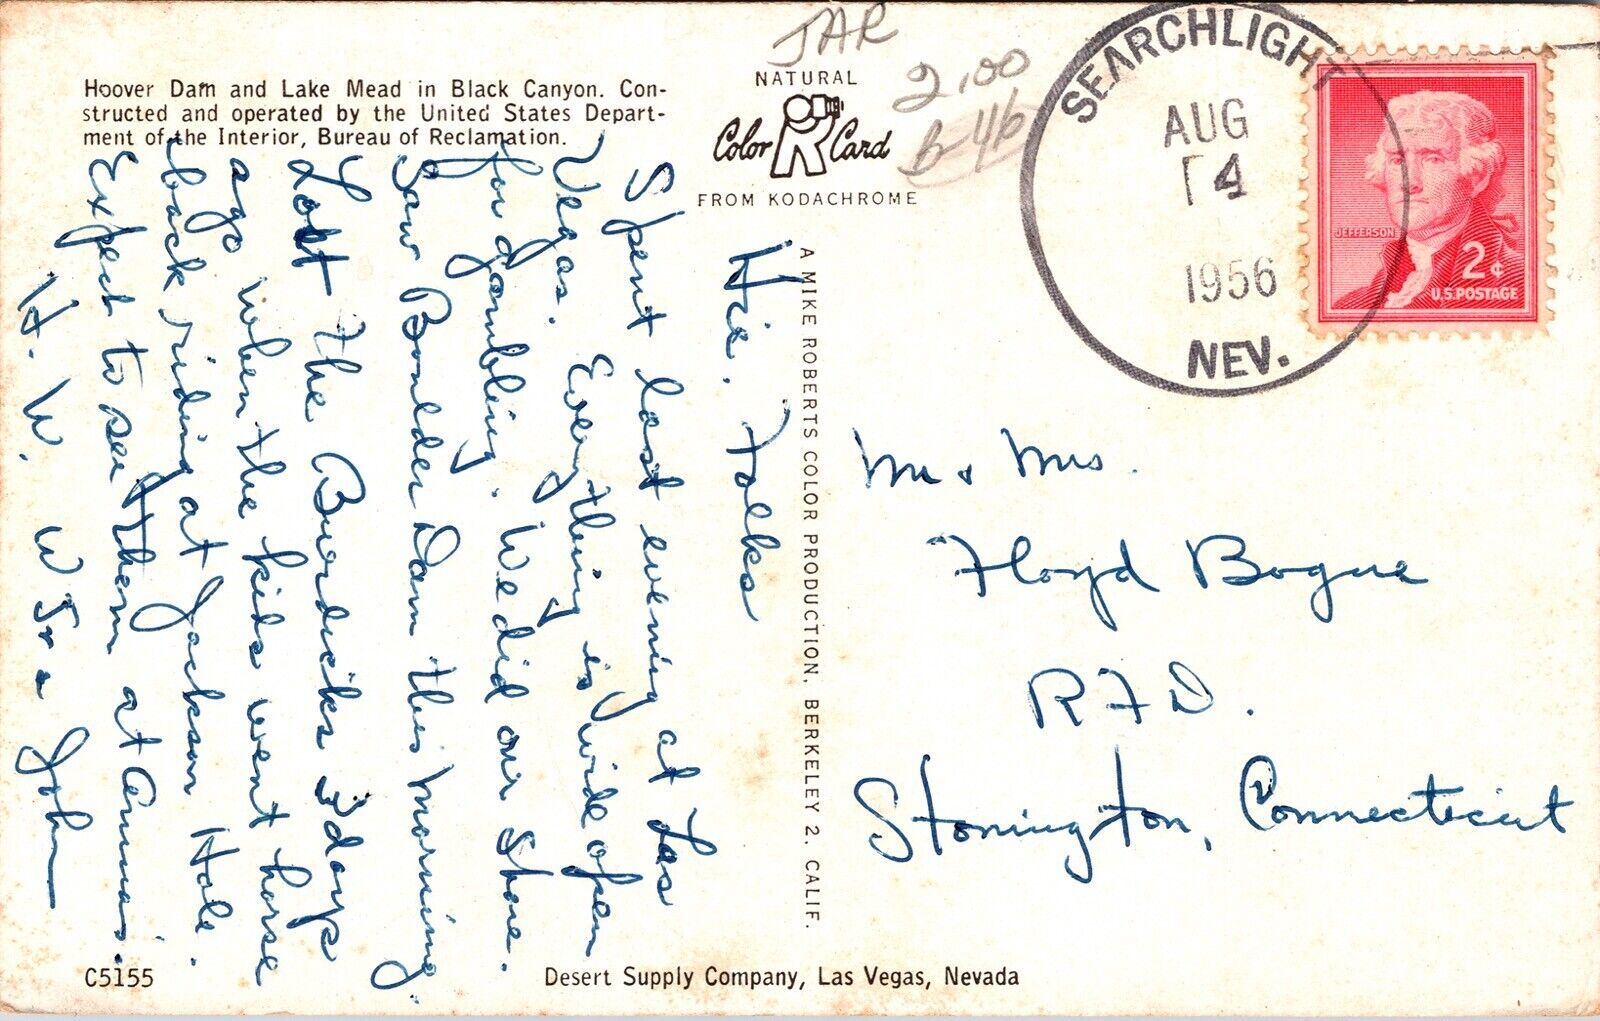 Hoover Dam and Lake Mead in Black Canyon. Con-
structed and operated by the United States Depart-
ment of the Interior, Bureau of Reclamation.
JAR
2.00
B-46
NATURAL
Color Card
FROM KODACHROME
SEARCHLIGHT
AUG
14
1956
NEV.
JEFFERSON
2¢
U.S. POSTAGE
Hie. Folks
Spent last evening at Las
Vegas. Everything is wide open
for gambling. We did our share.
Saw Boulder Dam this morning.
Lost the Burdicks 3 days
ago when the kids went horse
back riding at Jackson Hole.
Expect to see them at Annas.
H. W. W Jr & John
A MIKE ROBERTS COLOR PRODUCTION, BERKELEY 2, CALIF.
Mr & Mrs.
Floyd Bogue
RFD.
Stonington, Connecticut
C5155
Desert Supply Company, Las Vegas, Nevada